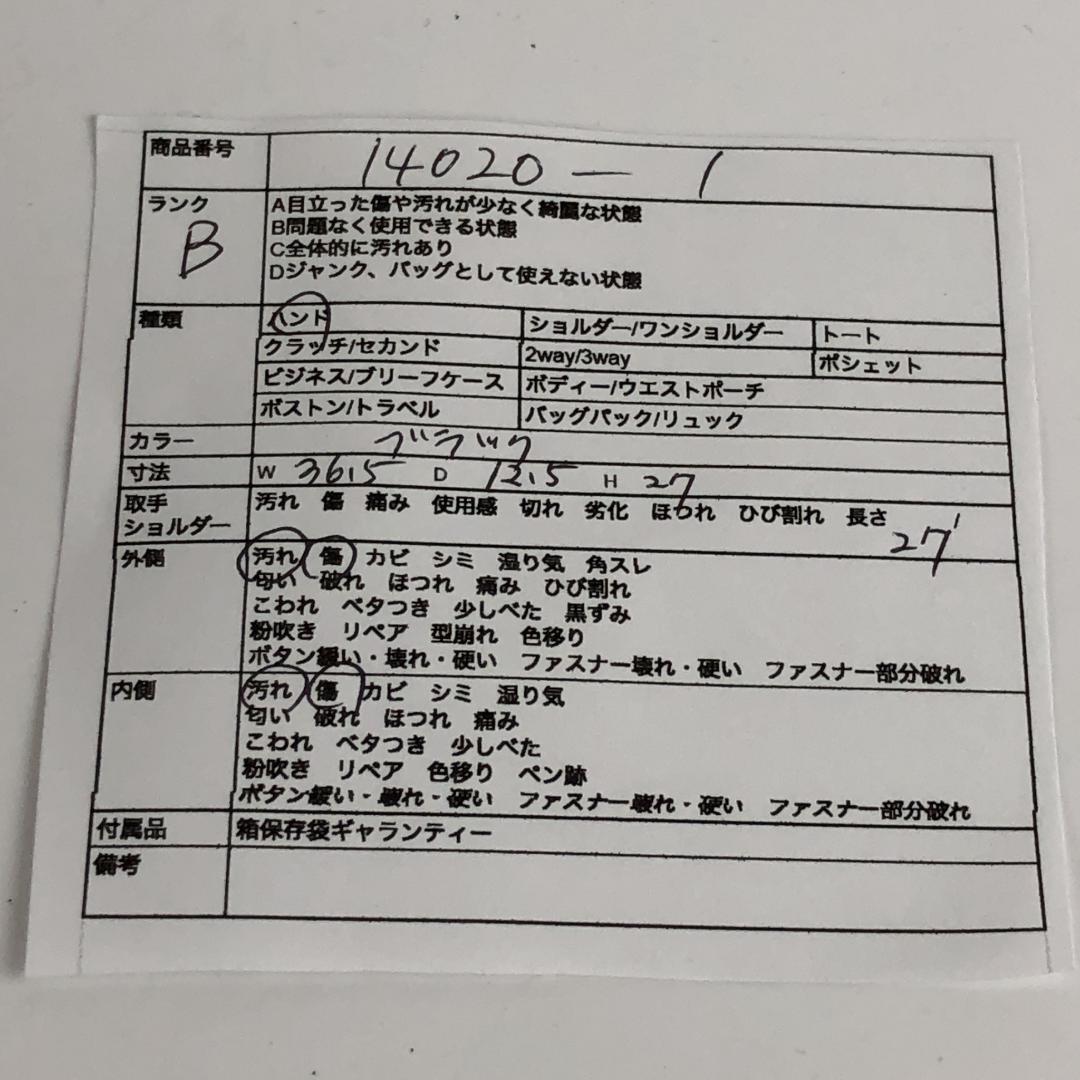 商品番号 14020 — 1
ランク B
A目立った傷や汚れが少なく綺麗な状態
B問題なく使用できる状態
C全体的に汚れあり
Dジャンク、バッグとして使えない状態
種類 ハンド ショルダー/ワンショルダー トート
クラッチ/セカンド 2way/3way ポシェット
ビジネス/ブリーフケース ボディー/ウエストポーチ
ボストン/トラベル バッグパック/リュック
カラー ブラック
寸法 W 36.5 D 12.5 H 27
取手 汚れ 傷 痛み 使用感 切れ 劣化 ほつれ ひび割れ 長さ
ショルダー 27
外側 汚れ 傷 カビ シミ 湿り気 角スレ
匂い 破れ ほつれ 痛み ひび割れ
こわれ ベタつき 少しべた 黒ずみ
粉吹き リペア 型崩れ 色移り
ボタン緩い・壊れ・硬い ファスナー壊れ・硬い ファスナー部分破れ
内側 汚れ 傷 カビ シミ 湿り気
匂い 破れ ほつれ 痛み
こわれ ベタつき 少しべた
粉吹き リペア 色移り ペン跡
ボタン緩い・壊れ・硬い ファスナー壊れ・硬い ファスナー部分破れ
付属品 箱保存袋ギャランティー
備考